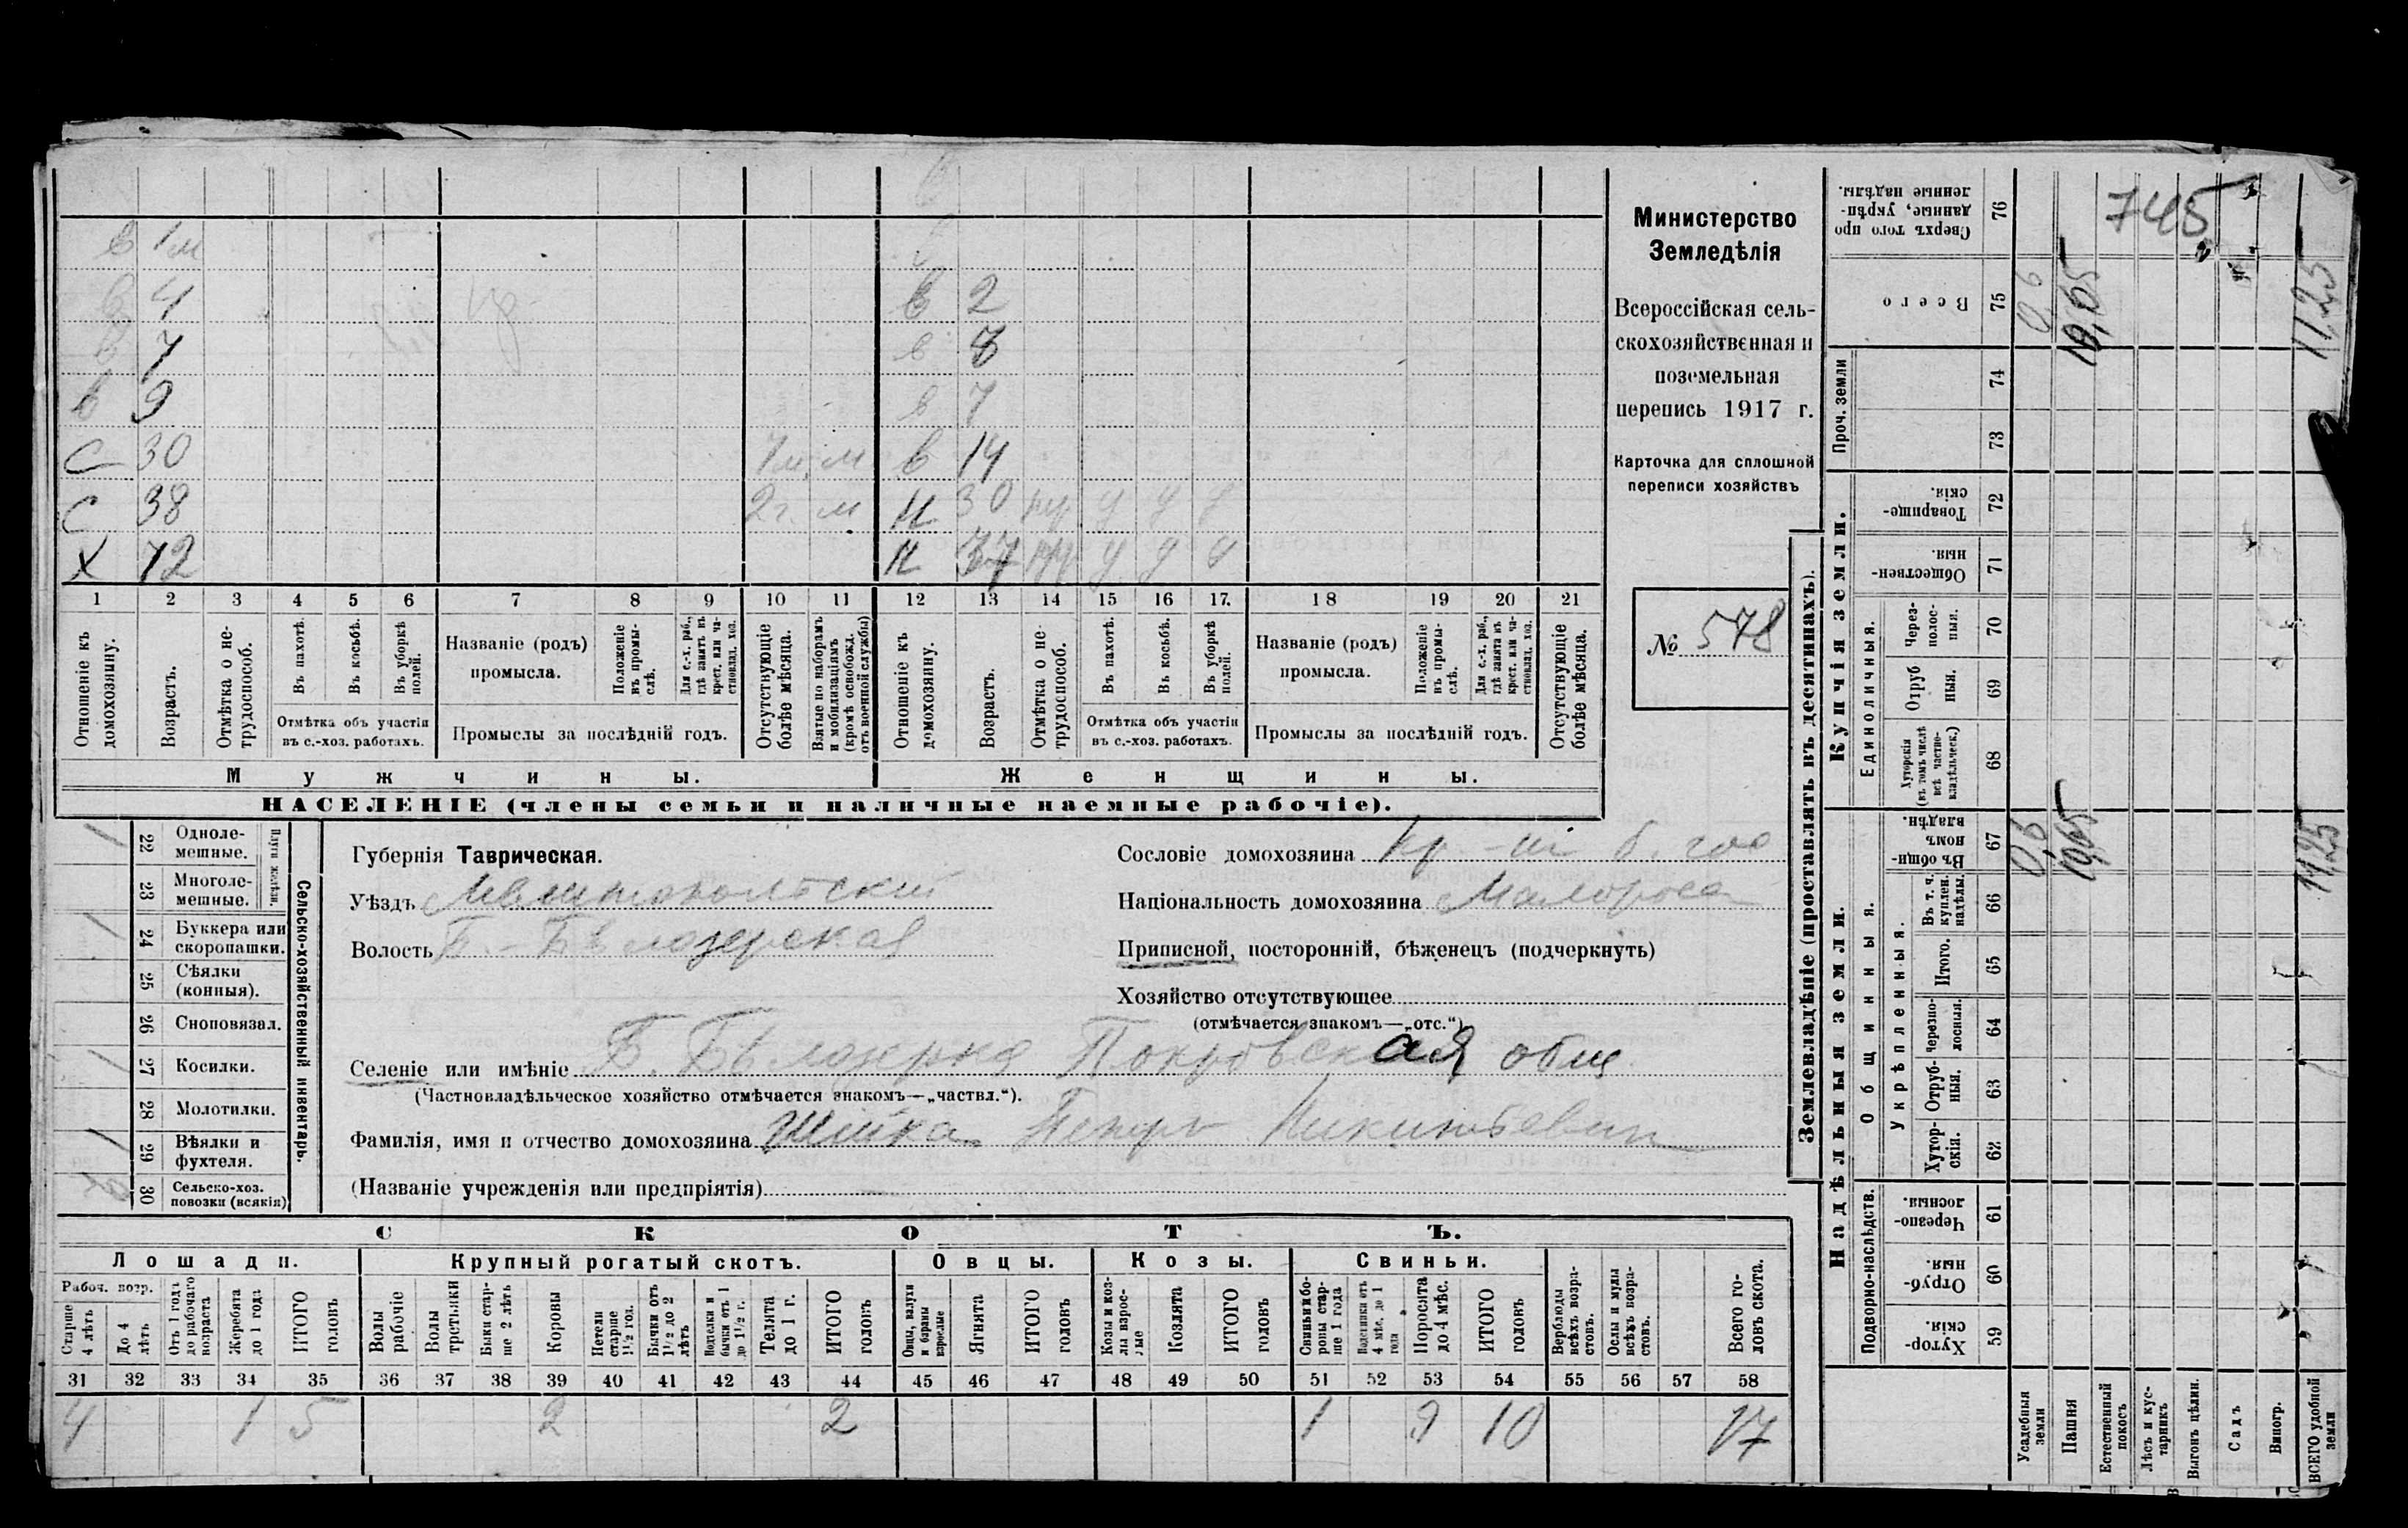 745
в 1м
в 4 в 2
в 7 в 8
в 9 в 7
С 30 1м. м в 14
С 38 2г. м н 30 пр у у у
Х 72 н 37 пр у у у
1 2 3 4 5 6 7 8 9 10 11 12 13 14 15 16 17. 18 19 20 21
Отношеніе къ домохозяину.
Возрастъ.
Отмѣтка о не-трудоспособ.
Въ пахотѣ.
Въ косьбѣ.
Въ уборкѣ полей.
Отмѣтка объ участіи въ с.-хоз. работахъ.
Названіе (родъ) промысла.
Положеніе въ промы-слѣ.
Для с.-х. раб., гдѣ занятъ въ крест. или ча-стновлад. хоз.
Промыслы за послѣдній годъ.
Отсутствующіе болѣе мѣсяца.
Взятые по наборамъ и мобилизаціямъ (кромѣ освобожд. отъ военной службы)
Отношеніе къ домохозяину.
Возрастъ.
Отмѣтка о не-трудоспособ.
Въ пахотѣ.
Въ косьбѣ.
Въ уборкѣ полей.
Отмѣтка объ участіи въ с.-хоз. работахъ.
Названіе (родъ) промысла.
Положеніе въ промы-слѣ.
Для с.-х. раб., гдѣ занята въ крест. или ча-стновлад. хоз.
Промыслы за послѣдній годъ.
Отсутствующіе болѣе мѣсяца.
Мужчины. Женщины.
НАСЕЛЕНІЕ (члены семьи и наличные наемные рабочіе).
Министерство
Земледѣлія
Всероссійская сель-
скохозяйственная и
поземельная
перепись 1917 г.
Карточка для сплошной
переписи хозяйствъ
№ 578
Сельско-хозяйственный инвентарь.
Плуги желѣзн.
1 22 Одноле-мешные.
23 Многоле-мешные.
1 24 Буккера или скоропашки.
25 Сѣялки (конныя).
26 Сноповязал.
1 27 Косилки.
28 Молотилки.
1 29 Вѣялки и фухтеля.
2 30 Сельско-хоз. повозки (всякія)
Губернія Таврическая.
Уѣздъ Мелитопольскій
Волость Б.-Бѣлозерская
Сословіе домохозяина кр-нъ б. гос
Національность домохозяина Малороссъ
Приписной, посторонній, бѣженецъ (подчеркнуть)
Хозяйство отсутствующее
(отмѣчается знакомъ—„отс.“)
Селеніе или имѣніе Б. Бѣлозерка Покровская общ
(Частновладѣльческое хозяйство отмѣчается знакомъ—„частвл.“).
Фамилія, имя и отчество домохозяина Шейка Петръ Никитьевич
(Названіе учрежденія или предпріятія)
СКОТЪ.
Лошади. Крупный рогатый скотъ. Овцы. Козы. Свиньи.
Рабоч. возр.
Старше 4 лѣтъ
До 4 лѣтъ
Отъ 1 года до рабочаго возраста
Жеребята до 1 года
ИТОГО головъ
Волы рабочіе
Волы третьяки
Быки стар-ше 2 лѣтъ
Коровы
Нетели старше 1½ год.
Бычки отъ 1½ до 2 лѣтъ
Подтелки и бычки отъ 1 до 1½ г.
Телята до 1 г.
ИТОГО головъ
Овцы, валухи и бараны взрослые
Ягнята
ИТОГО головъ
Козы и коз-лы взрос-лые
Козлята
ИТОГО головъ
Свиньи и бо-ровы стар-ше 1 года
Подсвинки отъ 4 мѣс. до 1 года
Поросята до 4 мѣс.
ИТОГО головъ
Верблюды всѣхъ возра-стовъ.
Ослы и мулы всѣхъ возра-стовъ.
Всего го-ловъ скота.
31 32 33 34 35 36 37 38 39 40 41 42 43 44 45 46 47 48 49 50 51 52 53 54 55 56 57 58
4 1 5 2 2 1 9 10 17
Землевладѣніе (проставлять въ десятинахъ).
Надѣльныя земли. Купчія земли. Проч. земли
Подворно-наслѣдств.
Общинныя.
Укрѣпленныя.
Единоличныя.
59 Хутор-скія.
60 Отруб-ныя.
61 Черезпо-лосныя.
62 Хутор-скія.
63 Отруб-ныя.
64 Черезпо-лосныя.
65 Итого.
66 Въ т. ч. куплен. надѣлы.
67 Въ общи-номъ владѣн.
68 Хуторскія (въ томъ числѣ всѣ частно-владѣльческ.)
69 Отруб ныя.
70 Через-полос-ныя.
71 Обществен-ныя.
72 Товарище-скія.
73
74
75 Всего
76 Сверхъ того про данные, укрѣп-ленные надѣлы.
Усадебныя земли 0,6 0,6
Пашня 10,65 10,65
Естественный покосъ
Лѣсъ и кус-тарникъ
Выгонъ цѣлин.
Садъ
Виногр.
ВСЕГО удобной земли 11,25 11,25